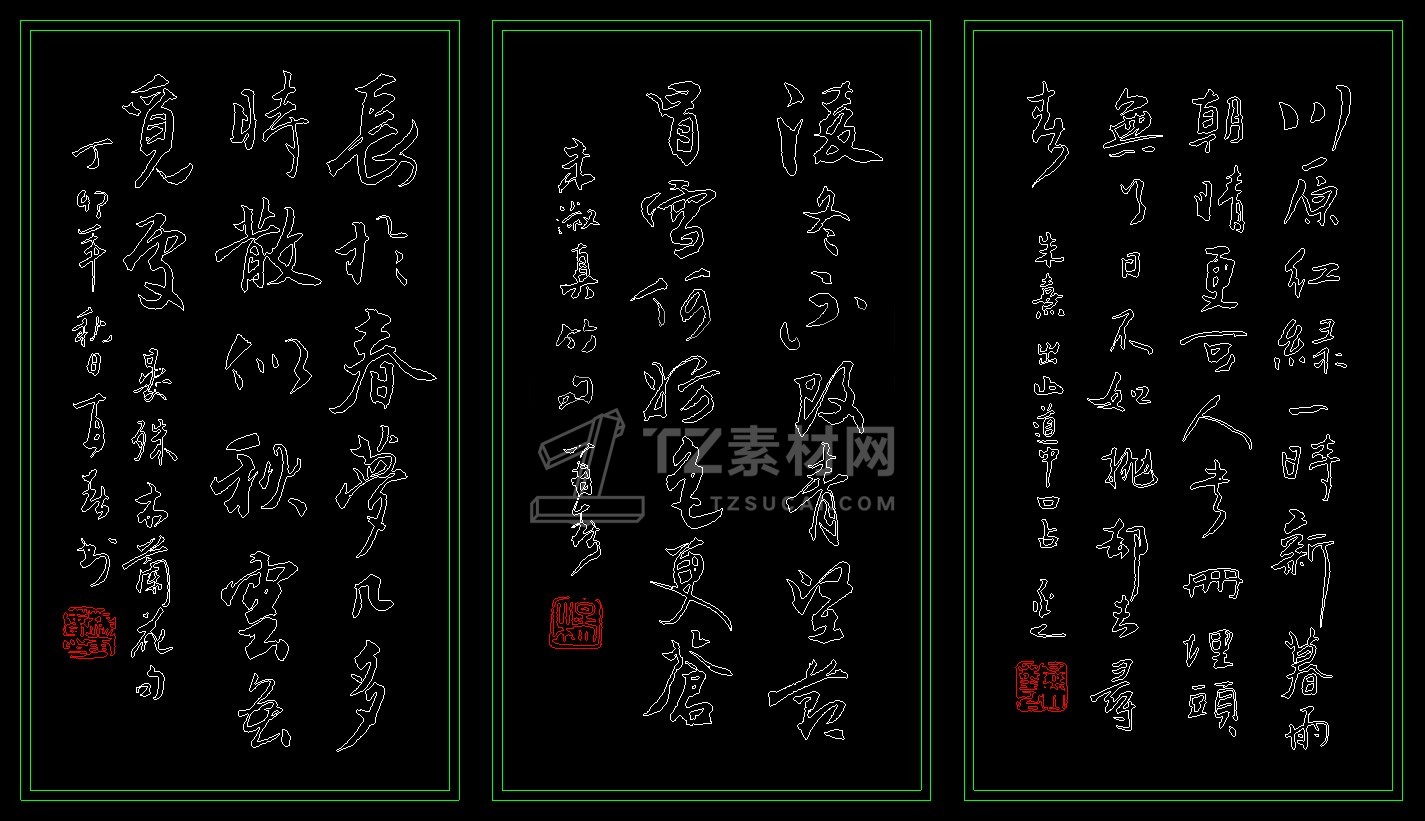 川原紅緑一時新暮雨
朝晴更可人書冊埋頭
無了日不如抛却去尋
春 朱熹 出山道中口占
凌冬不改青堅節
冒雪何妨色更蒼
朱淑真竹句
長於春夢几多
時散似秋雲無
覓處 晏殊木蘭花句
丁卯年秋日
TZ素材网
TZSUCAI.COM